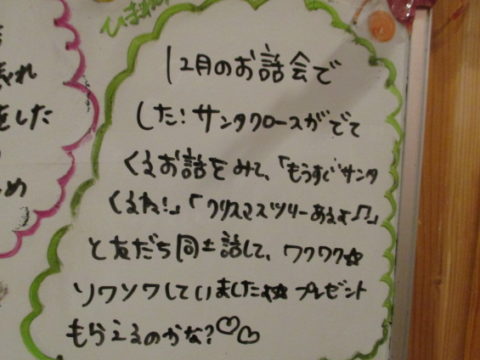 ひまわり
12月のお話会で
した!サンタクロースがでて
くるお話をみて、「もうすぐサンタ
くるね!」「クリスマスツリーあるよ♫」
と友だち同士話して、ワクワク☆
ソワソワしていましたよ☆プレゼント
もらえるのかな?♡♡
われ
をした
め